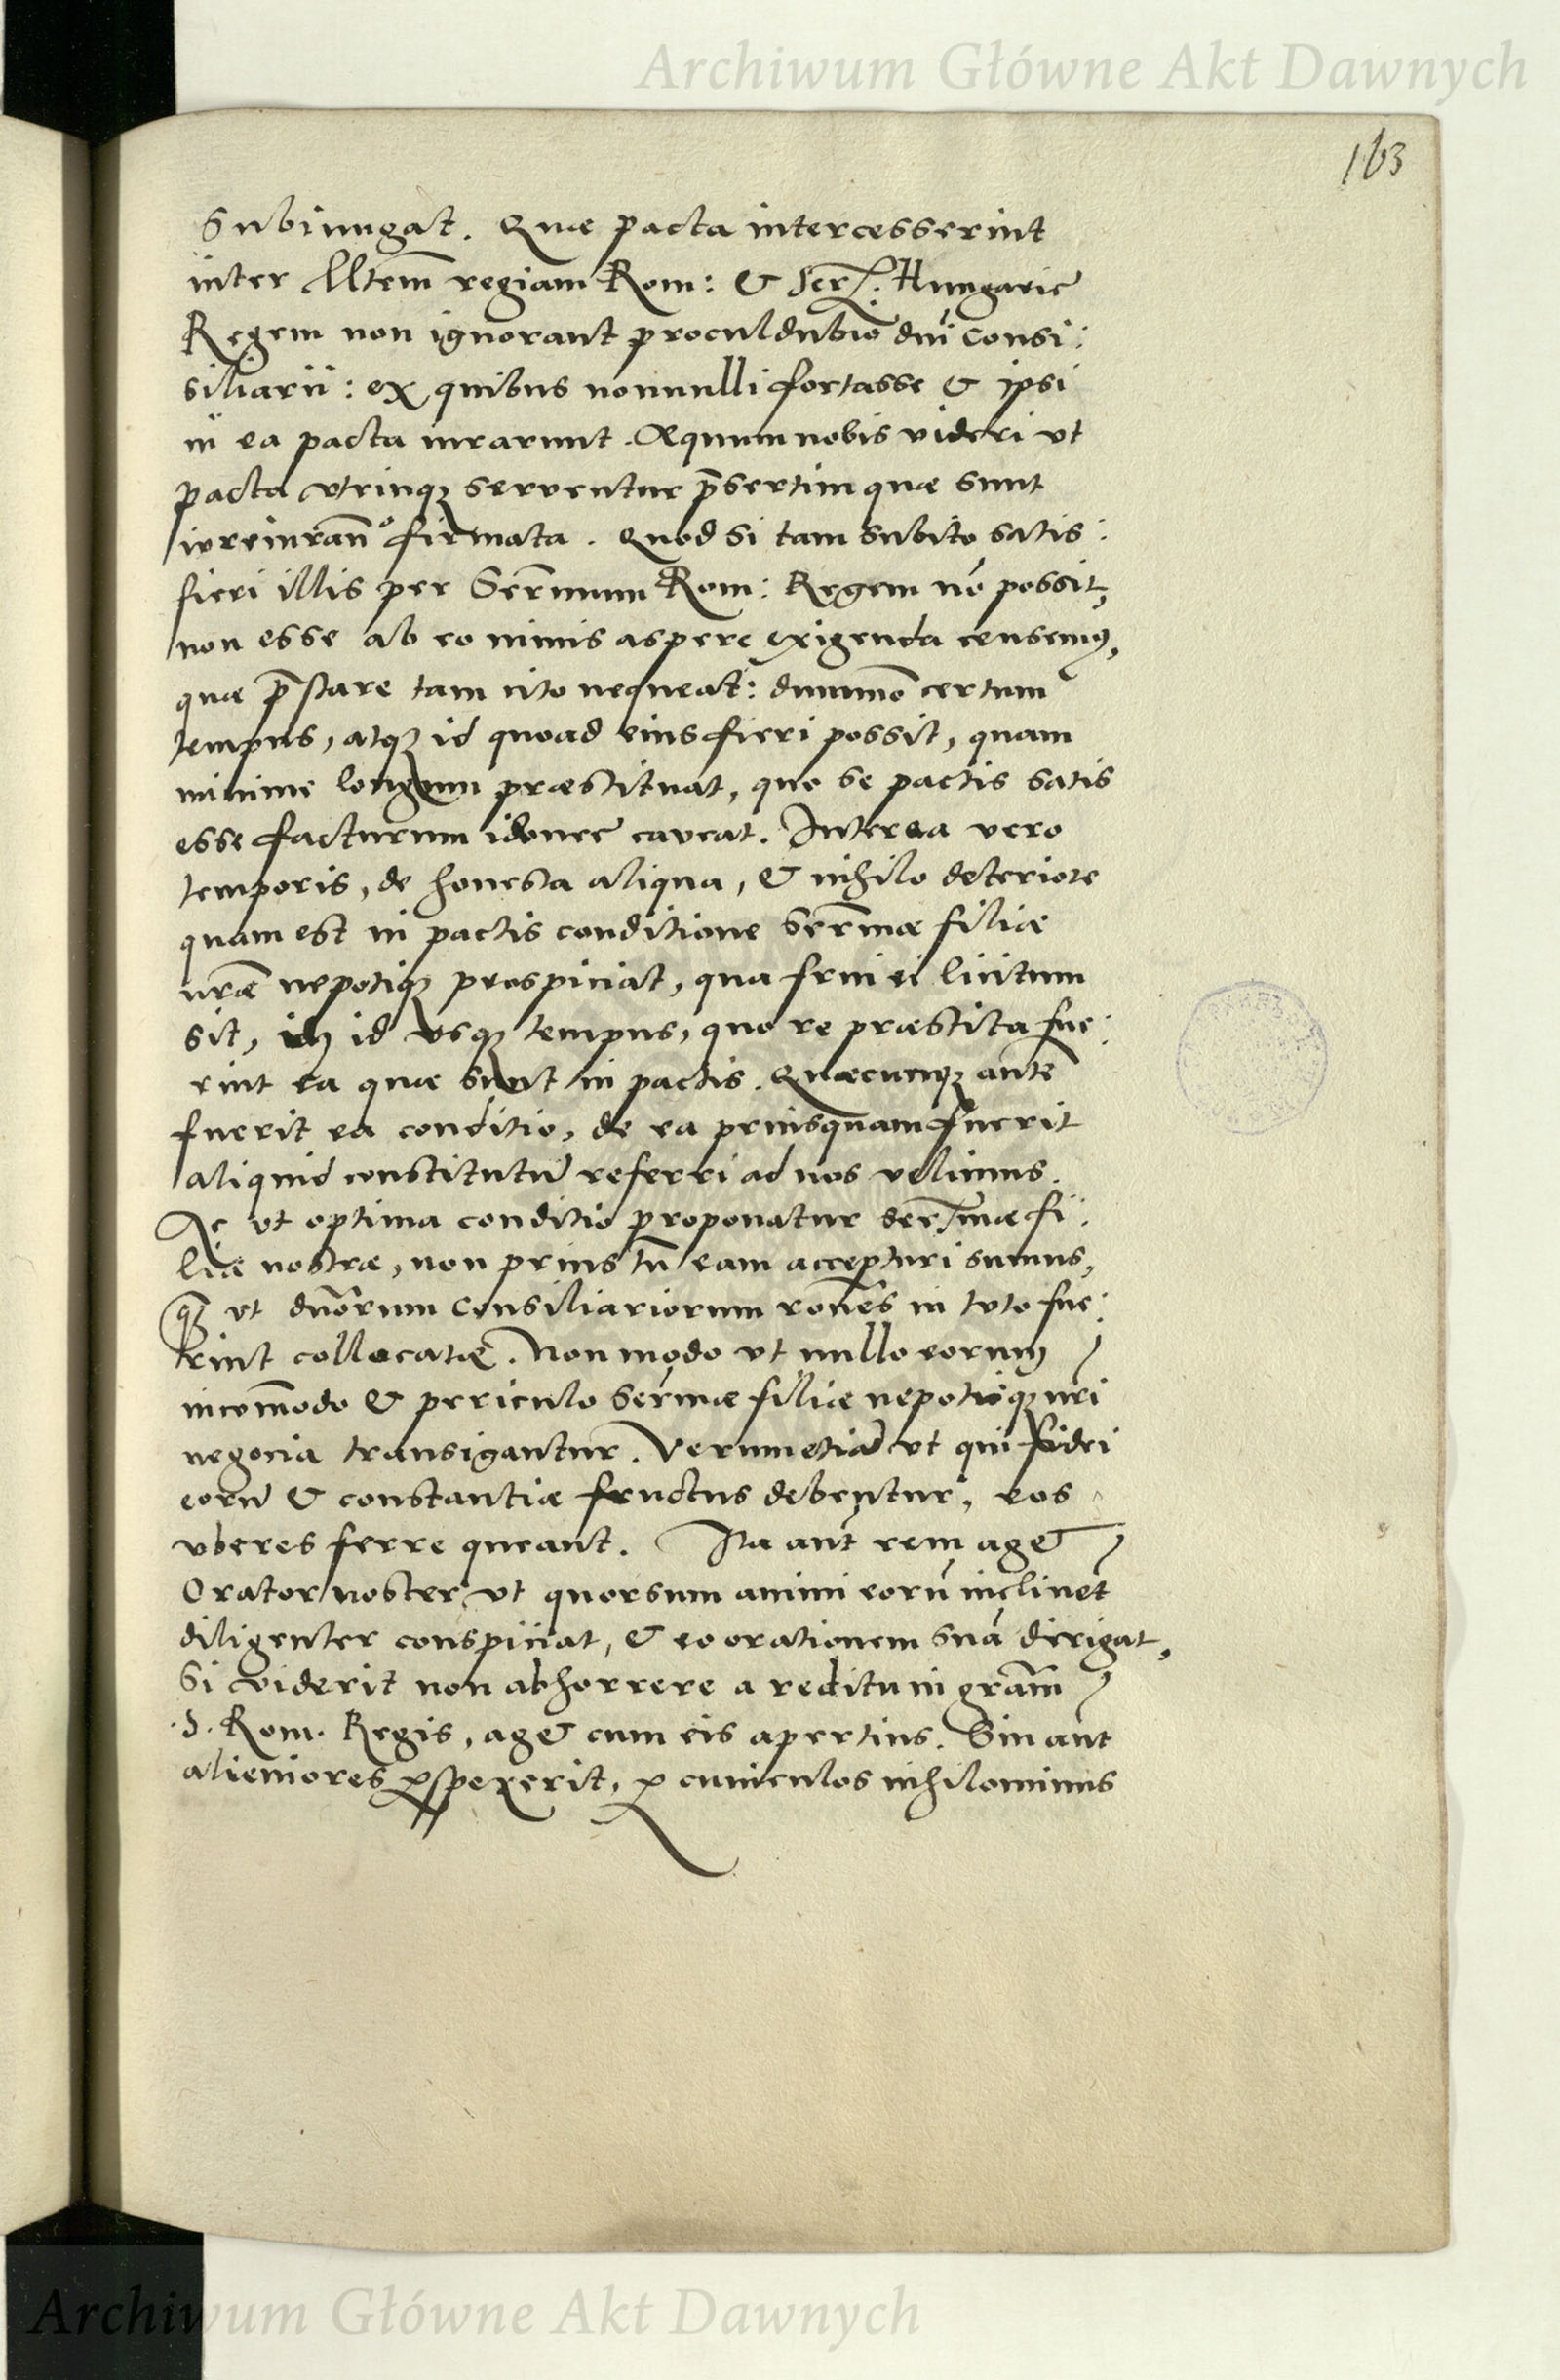 Archiwum Główne Akt Dawnych
163
Subiungat. Quæ pacta intercesserint
inter Mtem̃ regiam Rom: & Ser. Hungarie
Regem non ignorant proculdubio dñi Consi:
siliarii: ex quibus nonnulli fortasse & ipsi
in ea pacta iurarunt. Æquum nobis videri vt
pacta vtrinqȝ serventur p̃sertim quæ sunt
iureiurañ° firmata. Quod si tam subito satis:
fieri illis per Serm̃mum Rom: Regem nõ possit,
non esse ab eo nimis aspere exigenda censemꝰ,
quæ p̃stare tam cito nequeat: dummõ certum
tempus, atqȝ id quoad eius fieri possit, quam
minime longum præstituat, quo se pactis satis
esse facturum idonee caveat. Interea vero
temporis, de honesta aliqua, & nihilo deteriore
quam est in pactis conditione Serm̃æ filiæ
nr̃æ nepotiqȝ prospiciat, qua frui ei licitum
sit, id vsqȝ tempus, quo re præstita fue:
rint ea quæ sunt in pactis. Quæcunqȝ autẽ
fuerit ea conditio, de ea priusquam fuerit
aliquid constitutũ referri ad nos velimus.
Ac vt optima conditio proponatur serm̃æ fi:
liæ nostræ, non prius tñ eam accepturi sumus,
qȝ vt dñorum Consiliariorum rones in tuto fue:
rint collocatæ. Non modo vt nullo eorum
incom̃odo & periculo serm̃æ filiæ nepotisqȝ nr̃i
negocia transigantur. Verumetiã vt qui fidei
eorũ & constantiæ fructus debentur, eos
vberes ferre queant. Ita aut̃ rem aget
Orator noster vt quorsum animi eorũ inclinet
diligenter conspiciat, & eo orationem suã dirigat,
Si viderit non abhorrere a reditu in grãm
.S. Rom. Regis, aget cum eis apertius. Sin aut̃
alieniores ꝑspexerit, ꝑ cuniculos nihilominus
Archiwum Główne Akt Dawnych